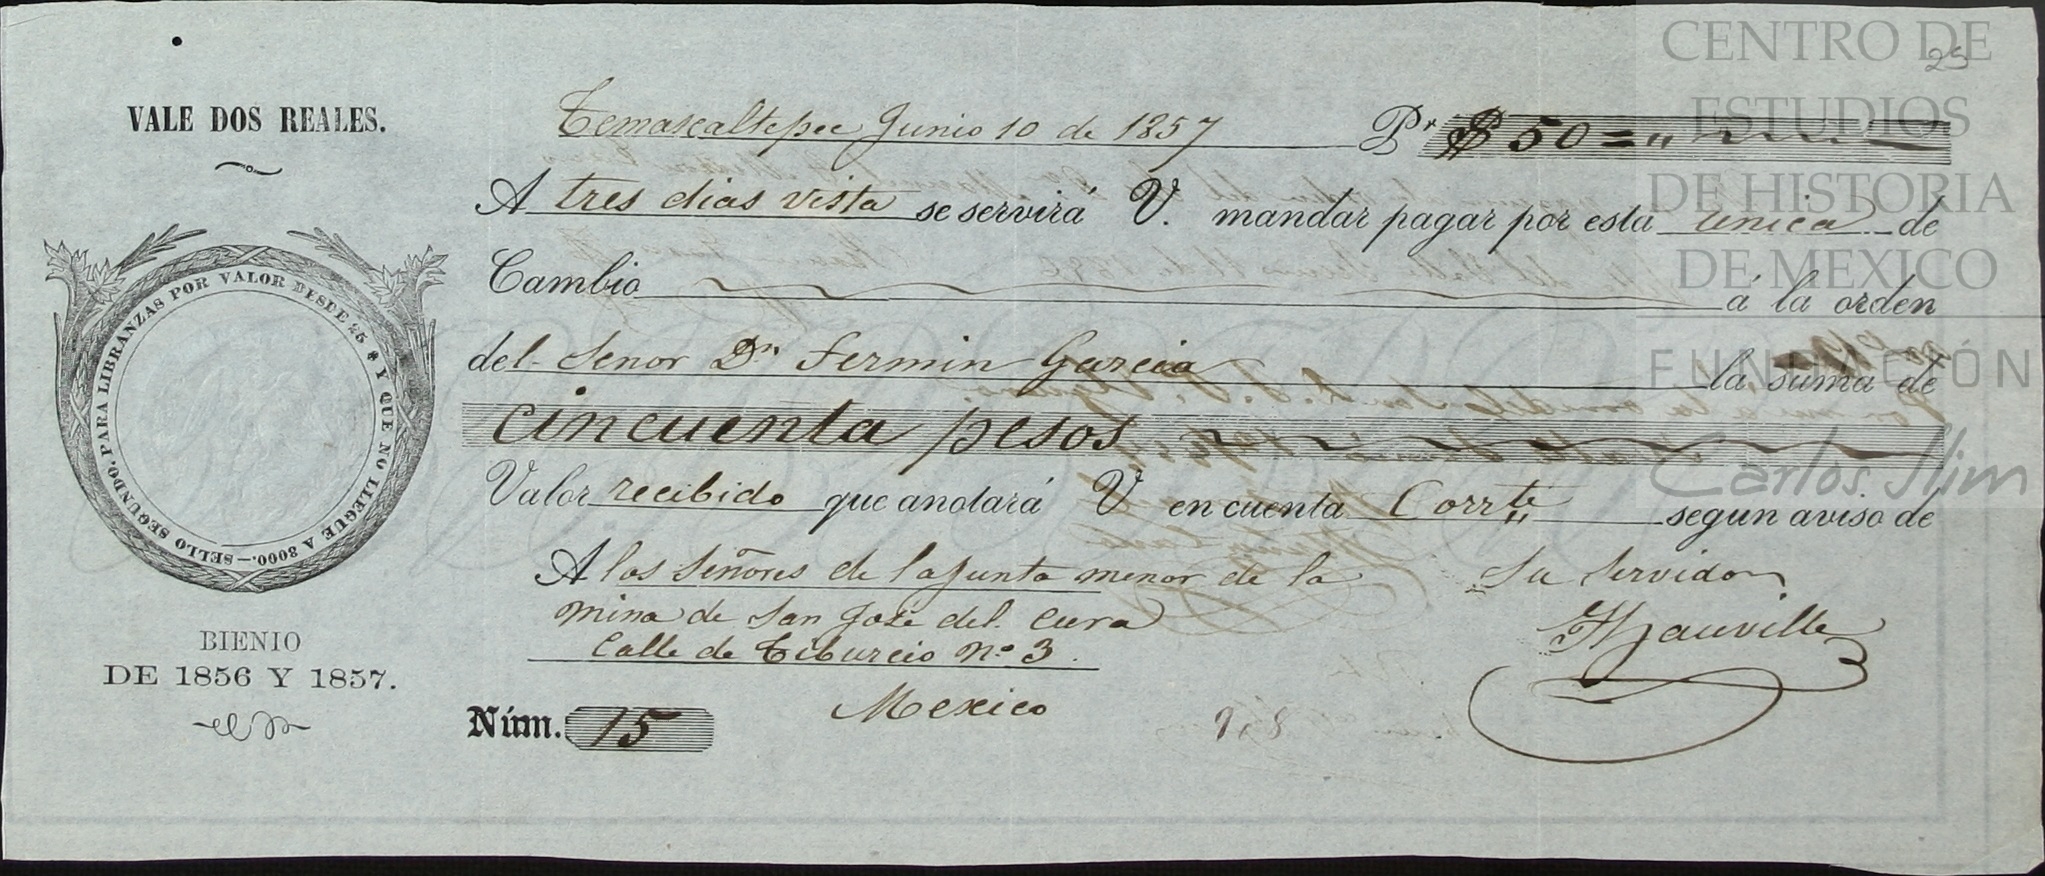 CENTRO DE
ESTUDIOS
DE HISTORIA
DE MEXICO
FUNDACIÓN
Carlos Slim
25
VALE DOS REALES.
PARA LIBRANZAS POR VALOR DESDE 25 $ Y QUE NO LLEGUE A 3000.—SELLO SEGUNDO.
BIENIO
DE 1856 Y 1857.
Temascaltepec Junio 10 de 1857 Pr. $ 50="
A tres dias vista se servirá V. mandar pagar por esta unica de
Cambio á la orden
del Senor Dn. Fermin Garcia la suma de
cincuenta pesos
Valor recibido que anotará V en cuenta Corrte segun aviso de
A los Señores de la Junta menor de la Su Servidor
mina de San José del Cura
Calle de Tiburcio No. 3.
Mexico
Núm. 15